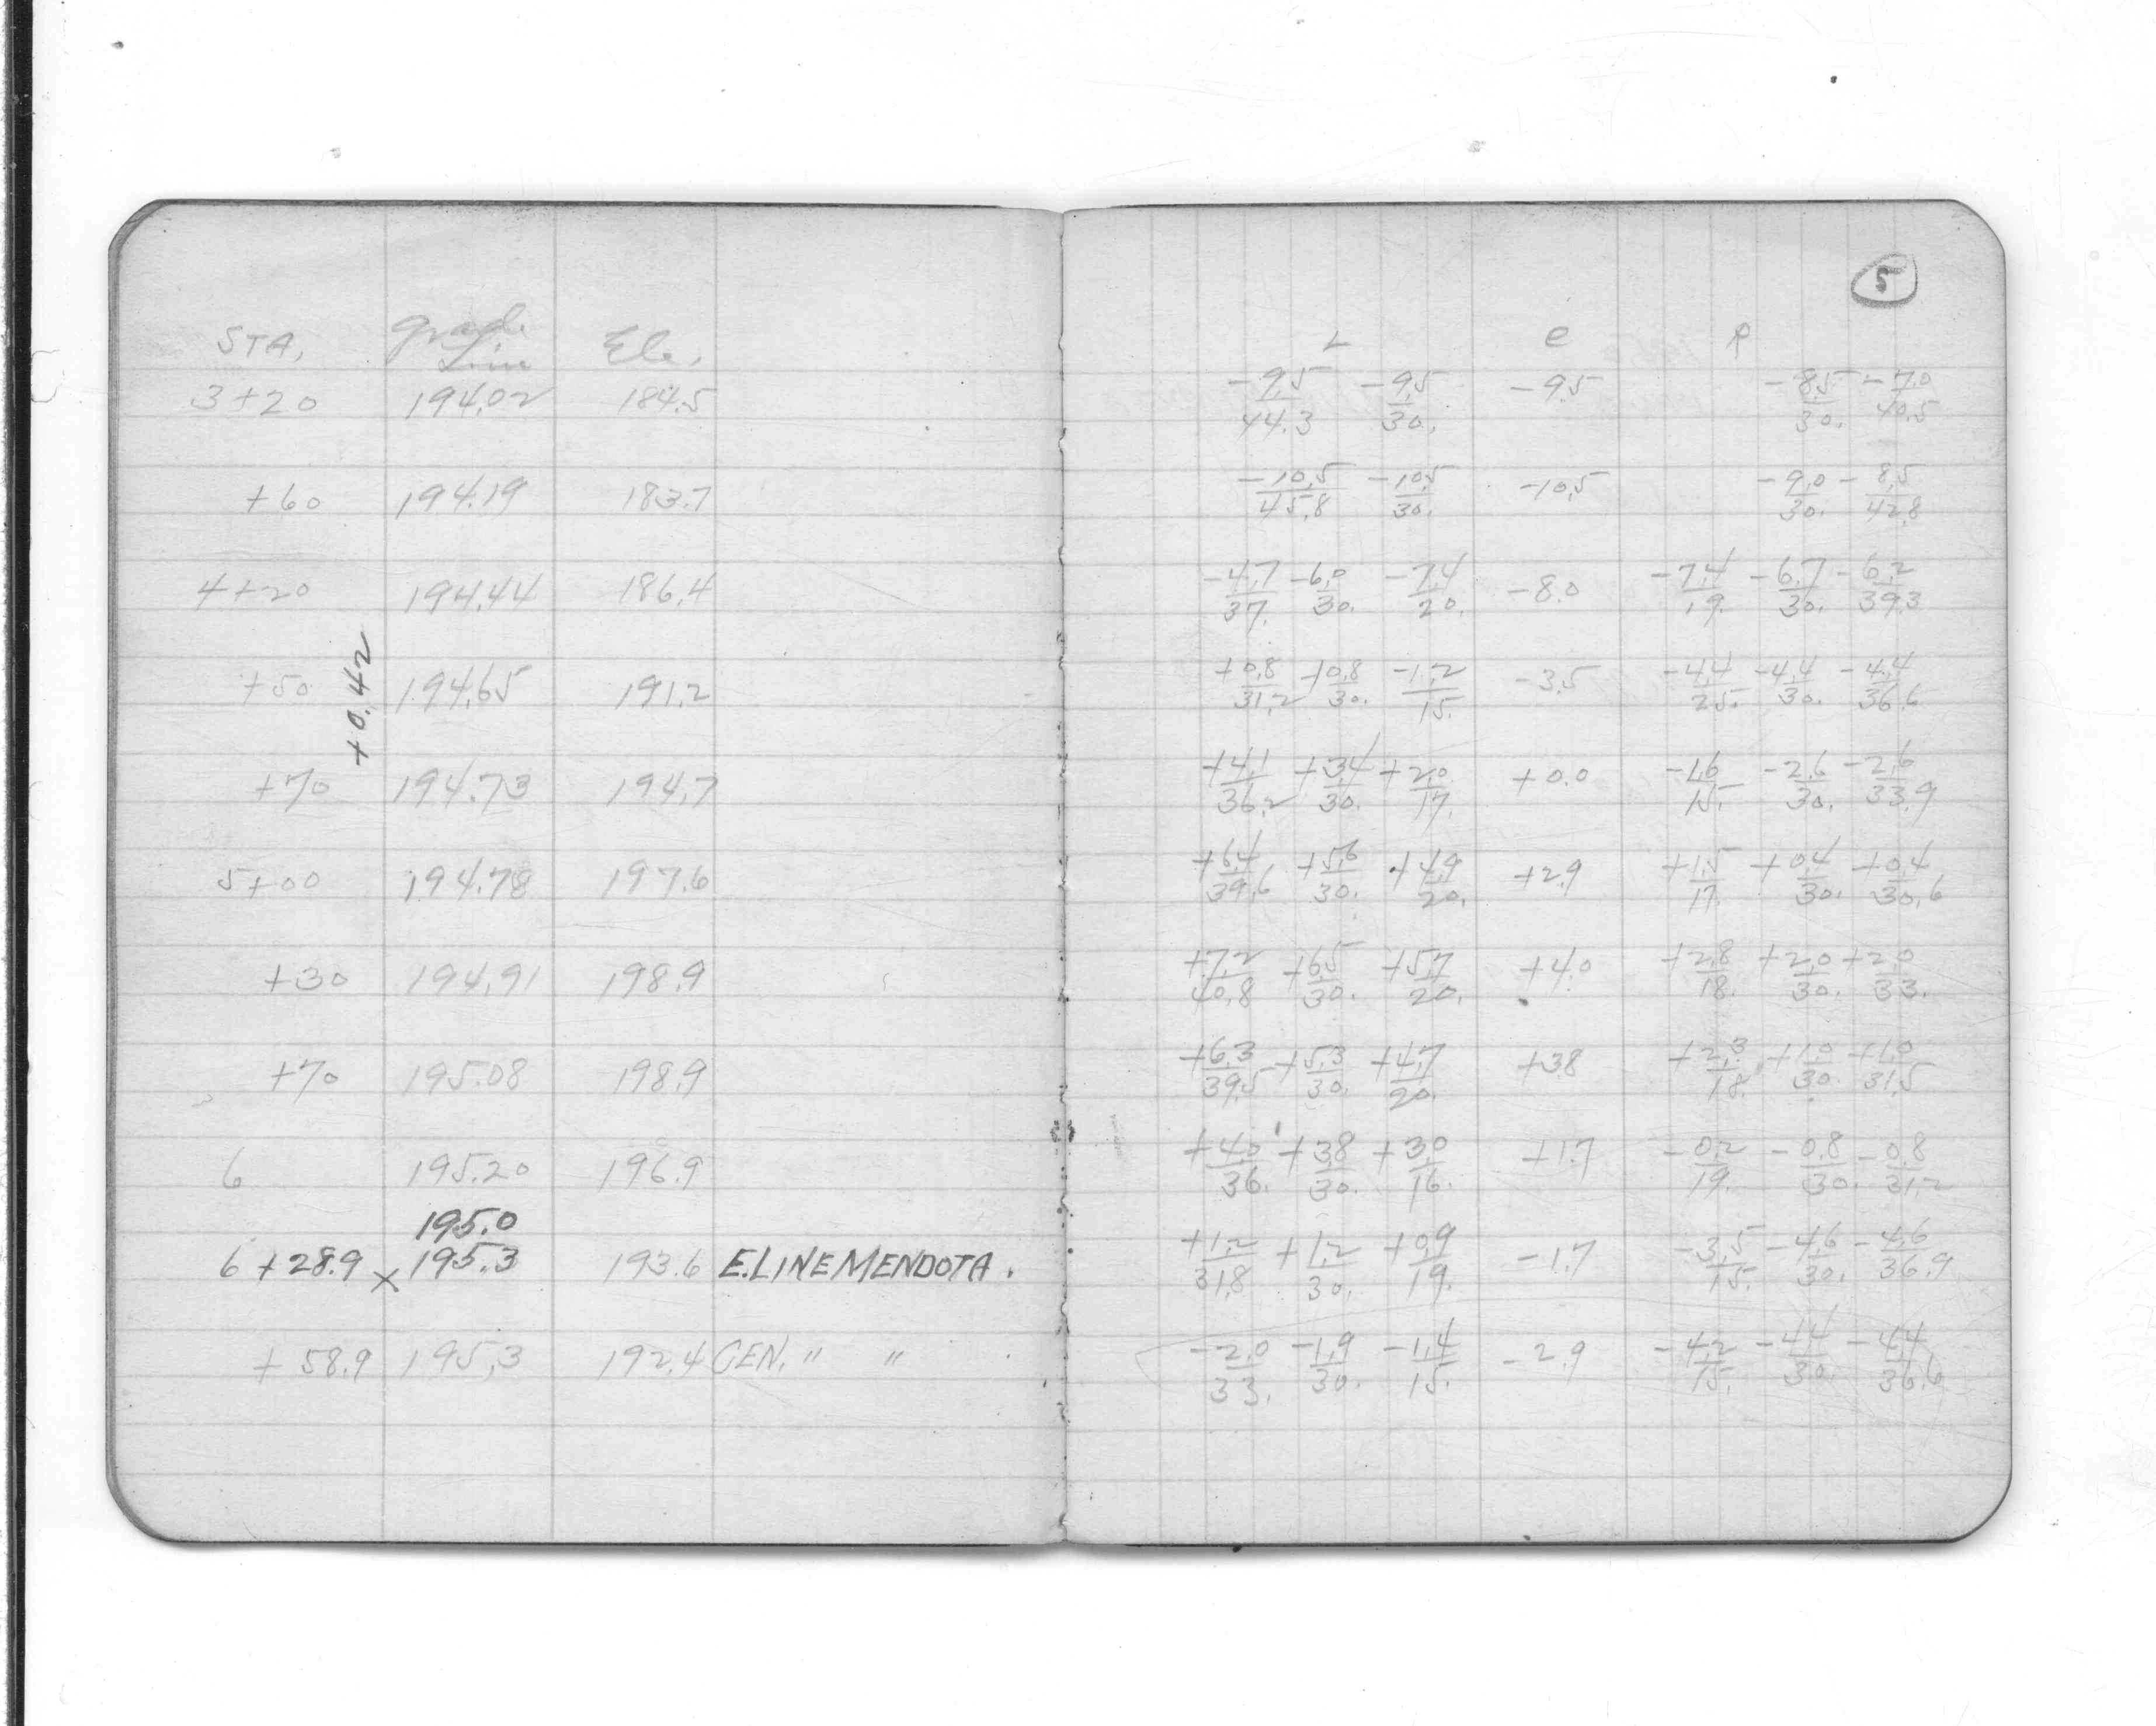 5
STA. Grade Line Ele. L C R
3+20 194.02 184.5 -9.5/44.3 -9.5/30. -9.5 -8.5/30. -7.0/40.5
+60 194.19 183.7 -10.5/45.8 -10.5/30. -10.5 -9.0/30. -8.5/42.8
4+20 194.44 186.4 -4.7/37. -6.0/30. -7.4/20. -8.0 -7.4/19. -6.7/30. -6.2/39.3
+0.42
+50 194.65 191.2 +0.8/31.2 +0.8/30. -1.2/15. -3.5 -4.4/25. -4.4/30. -4.4/36.6
+70 194.73 194.7 +4.1/36.2 +3.4/30. +2.0/17. +0.0 -1.6/15. -2.6/30. -2.6/33.9
5+00 194.78 197.6 +6.4/39.6 +5.6/30. +4.9/20. +2.9 +1.5/17. +0.4/30. +0.4/30.6
+30 194.91 198.9 +7.2/40.8 +6.5/30. +5.7/20. +4.0 +2.8/18. +2.0/30. +2.0/33.
+70 195.08 198.9 +6.3/39.5 +5.3/30. +4.7/20. +3.8 +2.3/18. +1.0/30. +1.0/31.5
6 195.20 196.9 +4.0/36. +3.8/30. +3.0/16. +1.7 -0.2/19. -0.8/30. -0.8/31.2
195.0
6+28.9 x 195.3 193.6 E.LINE MENDOTA. +1.2/31.8 +1.2/30. +0.9/19. -1.7 -3.5/15. -4.6/30. -4.6/36.9
+58.9 195.3 192.4 CEN. " " -2.0/33. -1.9/30. -1.4/15. -2.9 -4.2/15. -4.4/30. -4.4/36.6